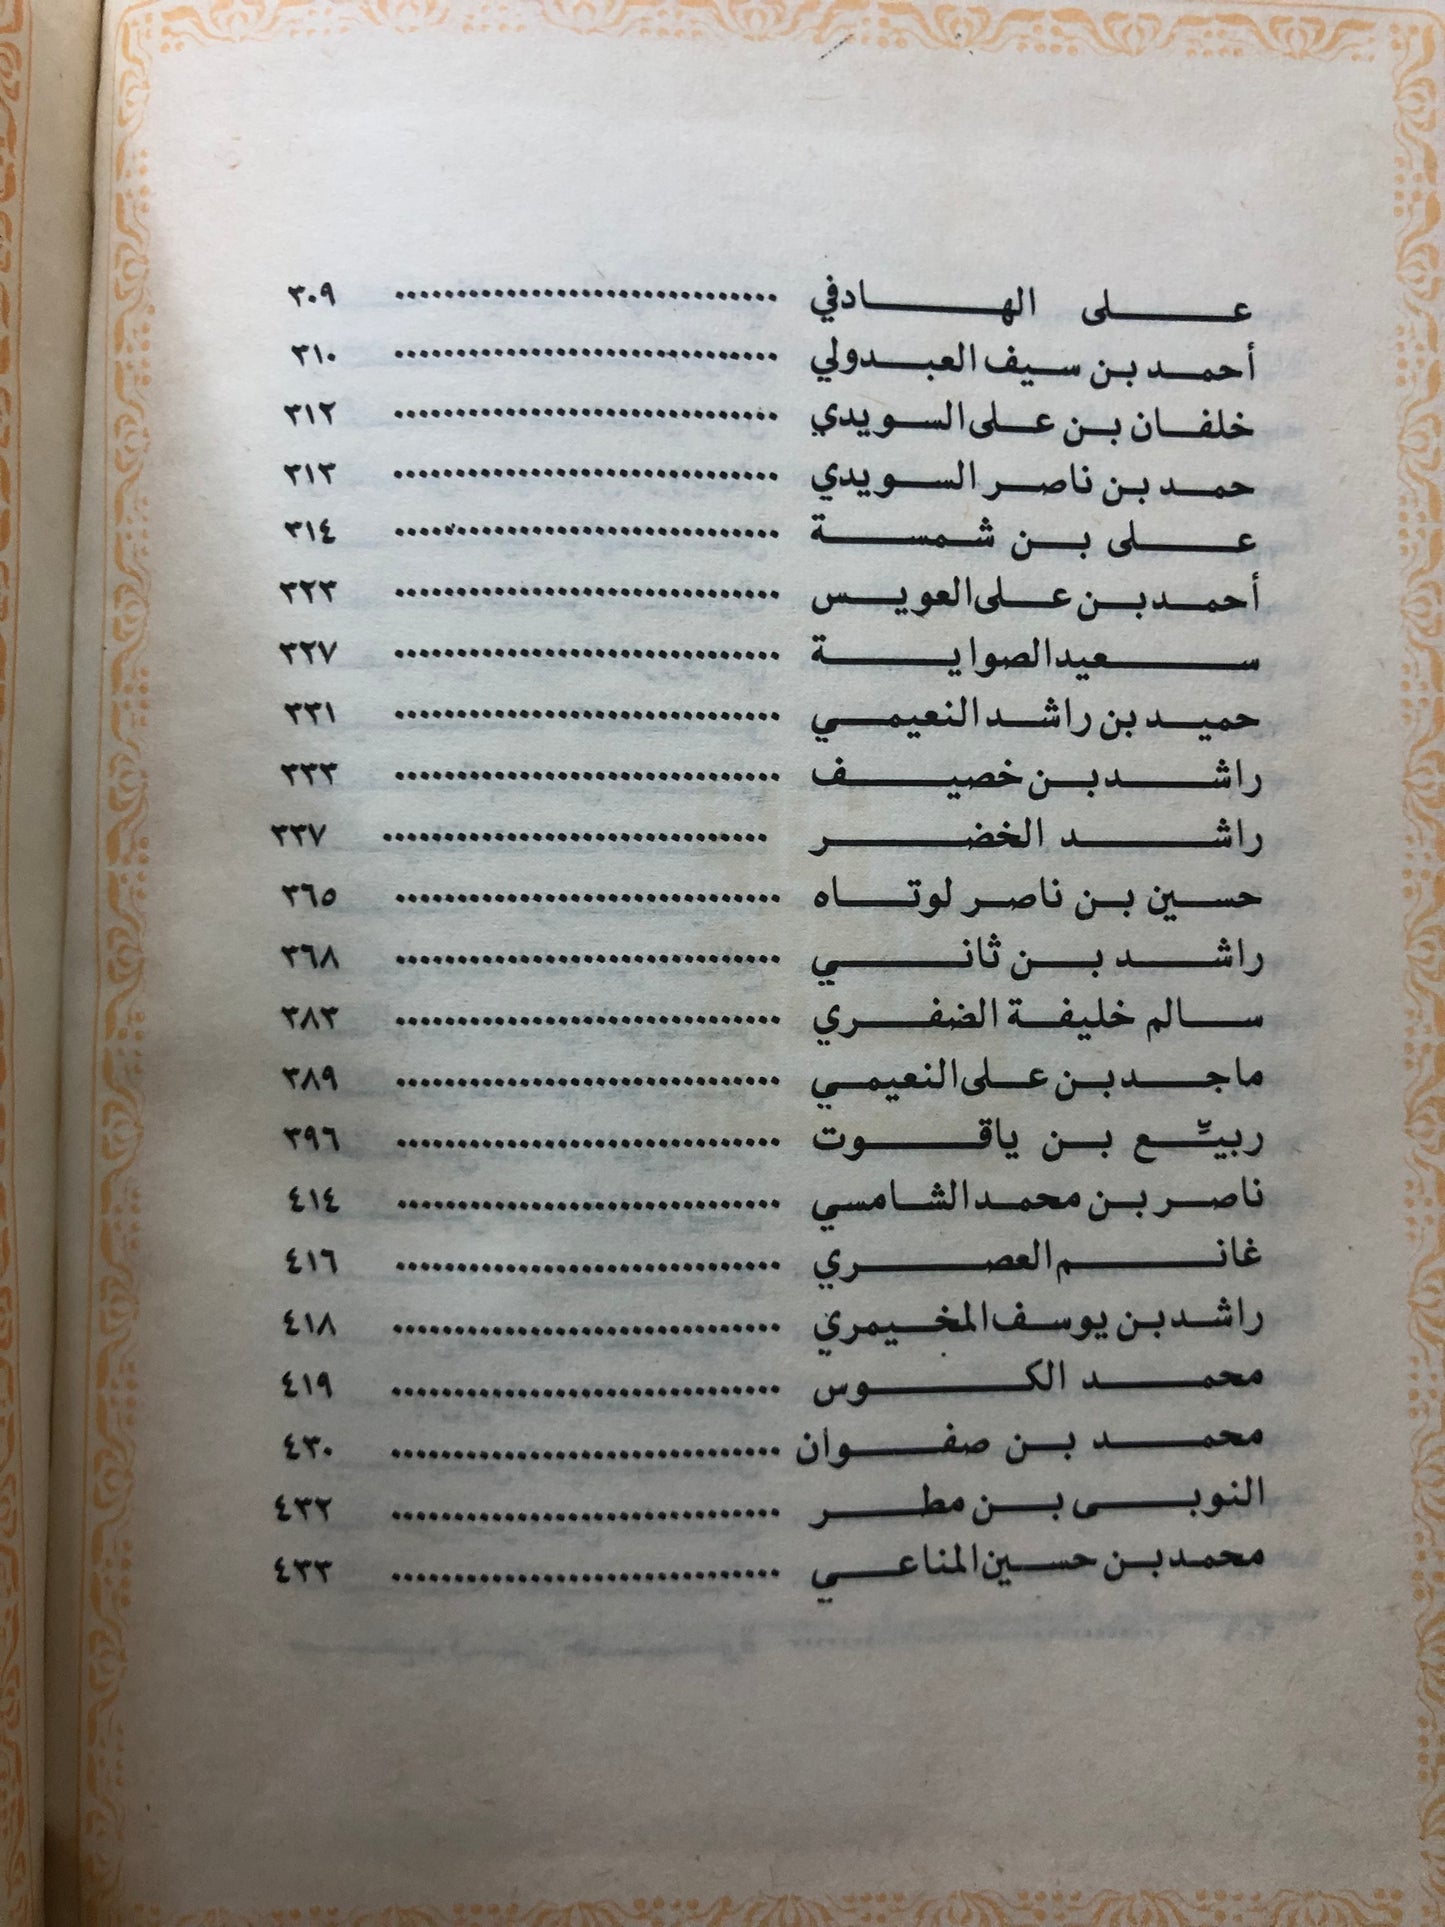 على الهادفي .............................. ٣٠٩
أحمد بن سيف العبدولي .............................. ٣١٠
خلفان بن على السويدي .............................. ٣١٢
حمد بن ناصر السويدي .............................. ٣١٣
على بن شمسة .............................. ٣١٤
أحمد بن على العويس .............................. ٣٢٣
سعيد الصواية .............................. ٣٢٧
حميد بن راشد النعيمي .............................. ٣٣١
راشد بن خصيف .............................. ٣٣٣
راشد الخضر .............................. ٣٣٧
حسين بن ناصر لوتاه .............................. ٣٦٥
راشد بن ثاني .............................. ٣٦٨
سالم خليفة الضفري .............................. ٣٨٣
ماجد بن على النعيمي .............................. ٣٨٩
ربيّع بن ياقوت .............................. ٣٩٦
ناصر بن محمد الشامسي .............................. ٤١٤
غانم العصري .............................. ٤١٦
راشد بن يوسف المخيمري .............................. ٤١٨
محمد الكوس .............................. ٤١٩
محمد بن صفوان .............................. ٤٣٠
النوبى بن مطر .............................. ٤٣٢
محمد بن حسين المناعي .............................. ٤٣٣